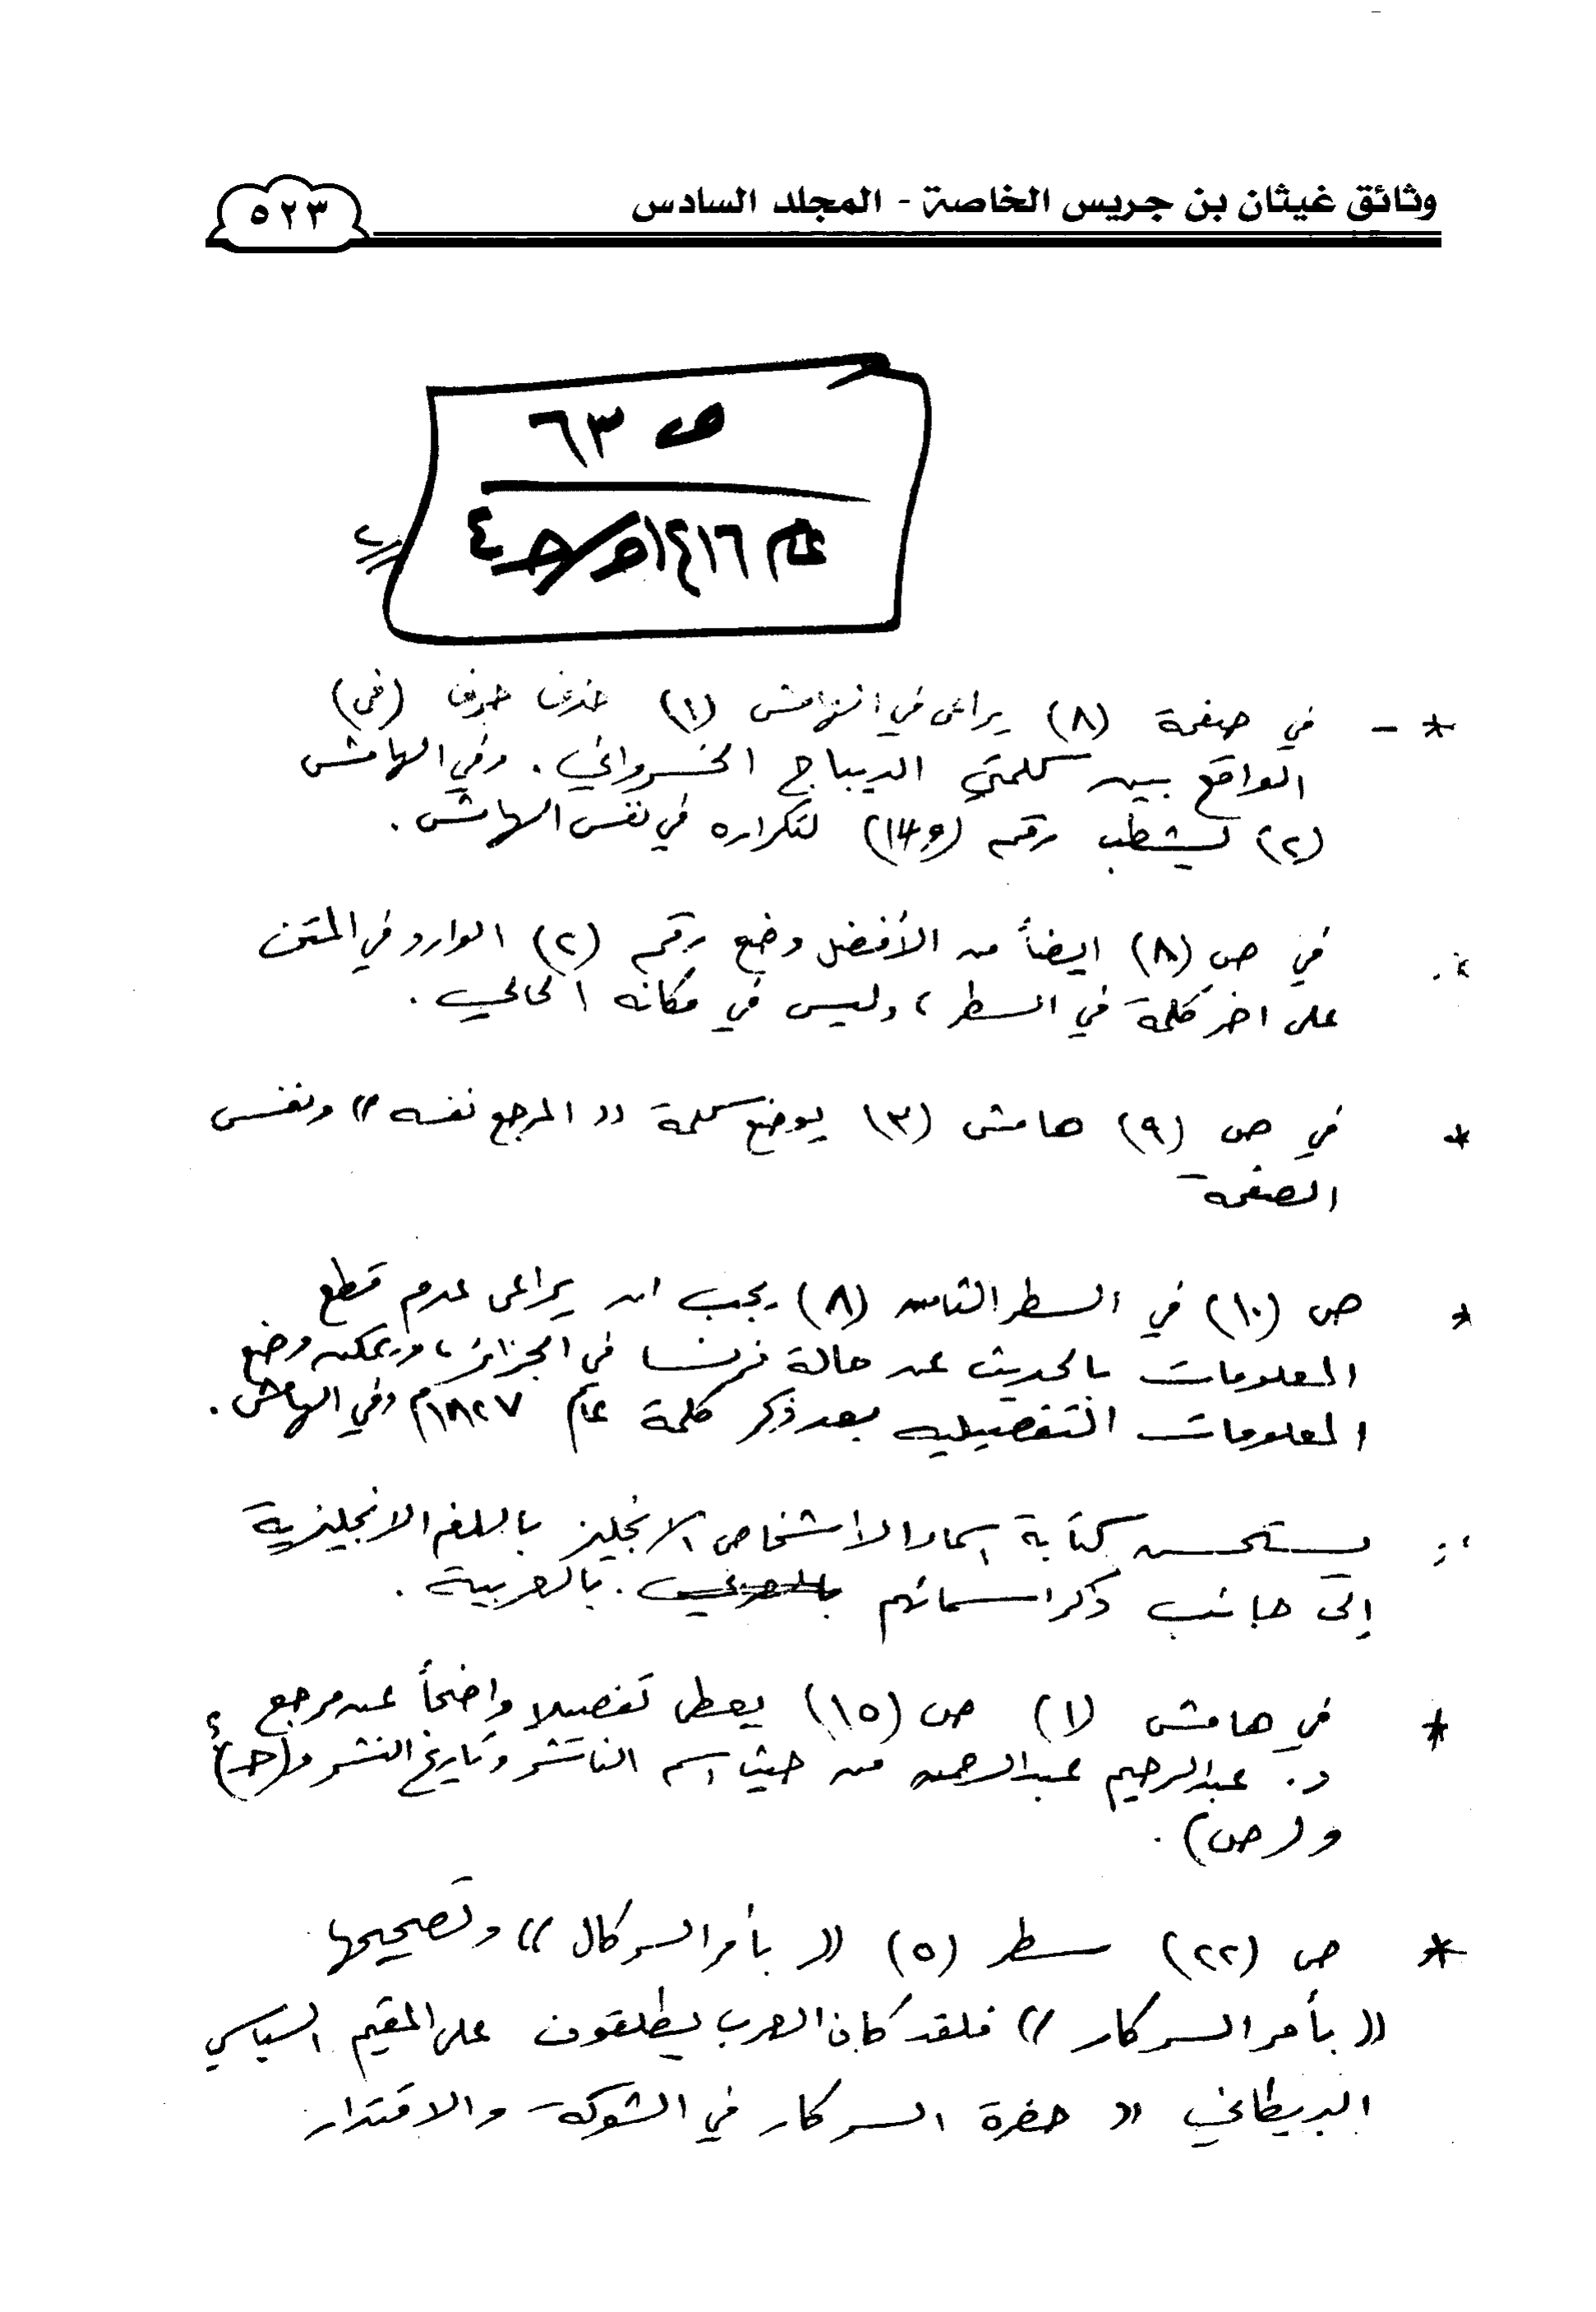 وثائق غيثان بن جريس الخاصة - المجلد السادس
٥٢٣
ص ٦٣
عام ١٤١٦هـ / جـ ٤
* - في صفحة (٨) يراعى في الهامش (١) حذف حرف (في)
الواقع بين كلمتي الديباج الخسرواني . وفي الهامش
(٢) يشطب رقم لتكراره في نفس الهامش .
في ص (٨) ايضاً من الأفضل وضع رقم (٢) الوارد في المتن
على اخر كلمة في السطر ، وليس في مكانه الحالي .
* في ص (٩) هامش (٣) يوضع كلمة (( المرجع نفسه )) ونفس
الصفحة
* ص (١٠) في السطر الثامن (٨) يجب ان يراعى عدم قطع
المعلومات بالحديث عن حالة فرنسا في الجزائر ، ويمكن وضع
المعلومات التفصيليه بعد ذكر كلمة عام ١٨٢٧م وفي الهامش .
يستحسن كتابة اسماء الاشخاص الانجليز باللغة الانجليزية
إلى جانب ذكر اسمائهم بالعربية .
* في هامش (١) ص (١٥) يعطى تفصيلا واضحاً عن مرجع
د . عبدالرحيم عبدالرحمن من حيث اسم الناشر وتاريخ النشر و (جـ)
و (ص) .
* ص (٢٢) سطر (٥) (( بأمر السركال )) وتصحيحها
(( بأمر السركار )) فلقد كان العرب يطلقون على المقيم السياسي
البريطاني (( حضرة السركار في الشوكة والاقتدار